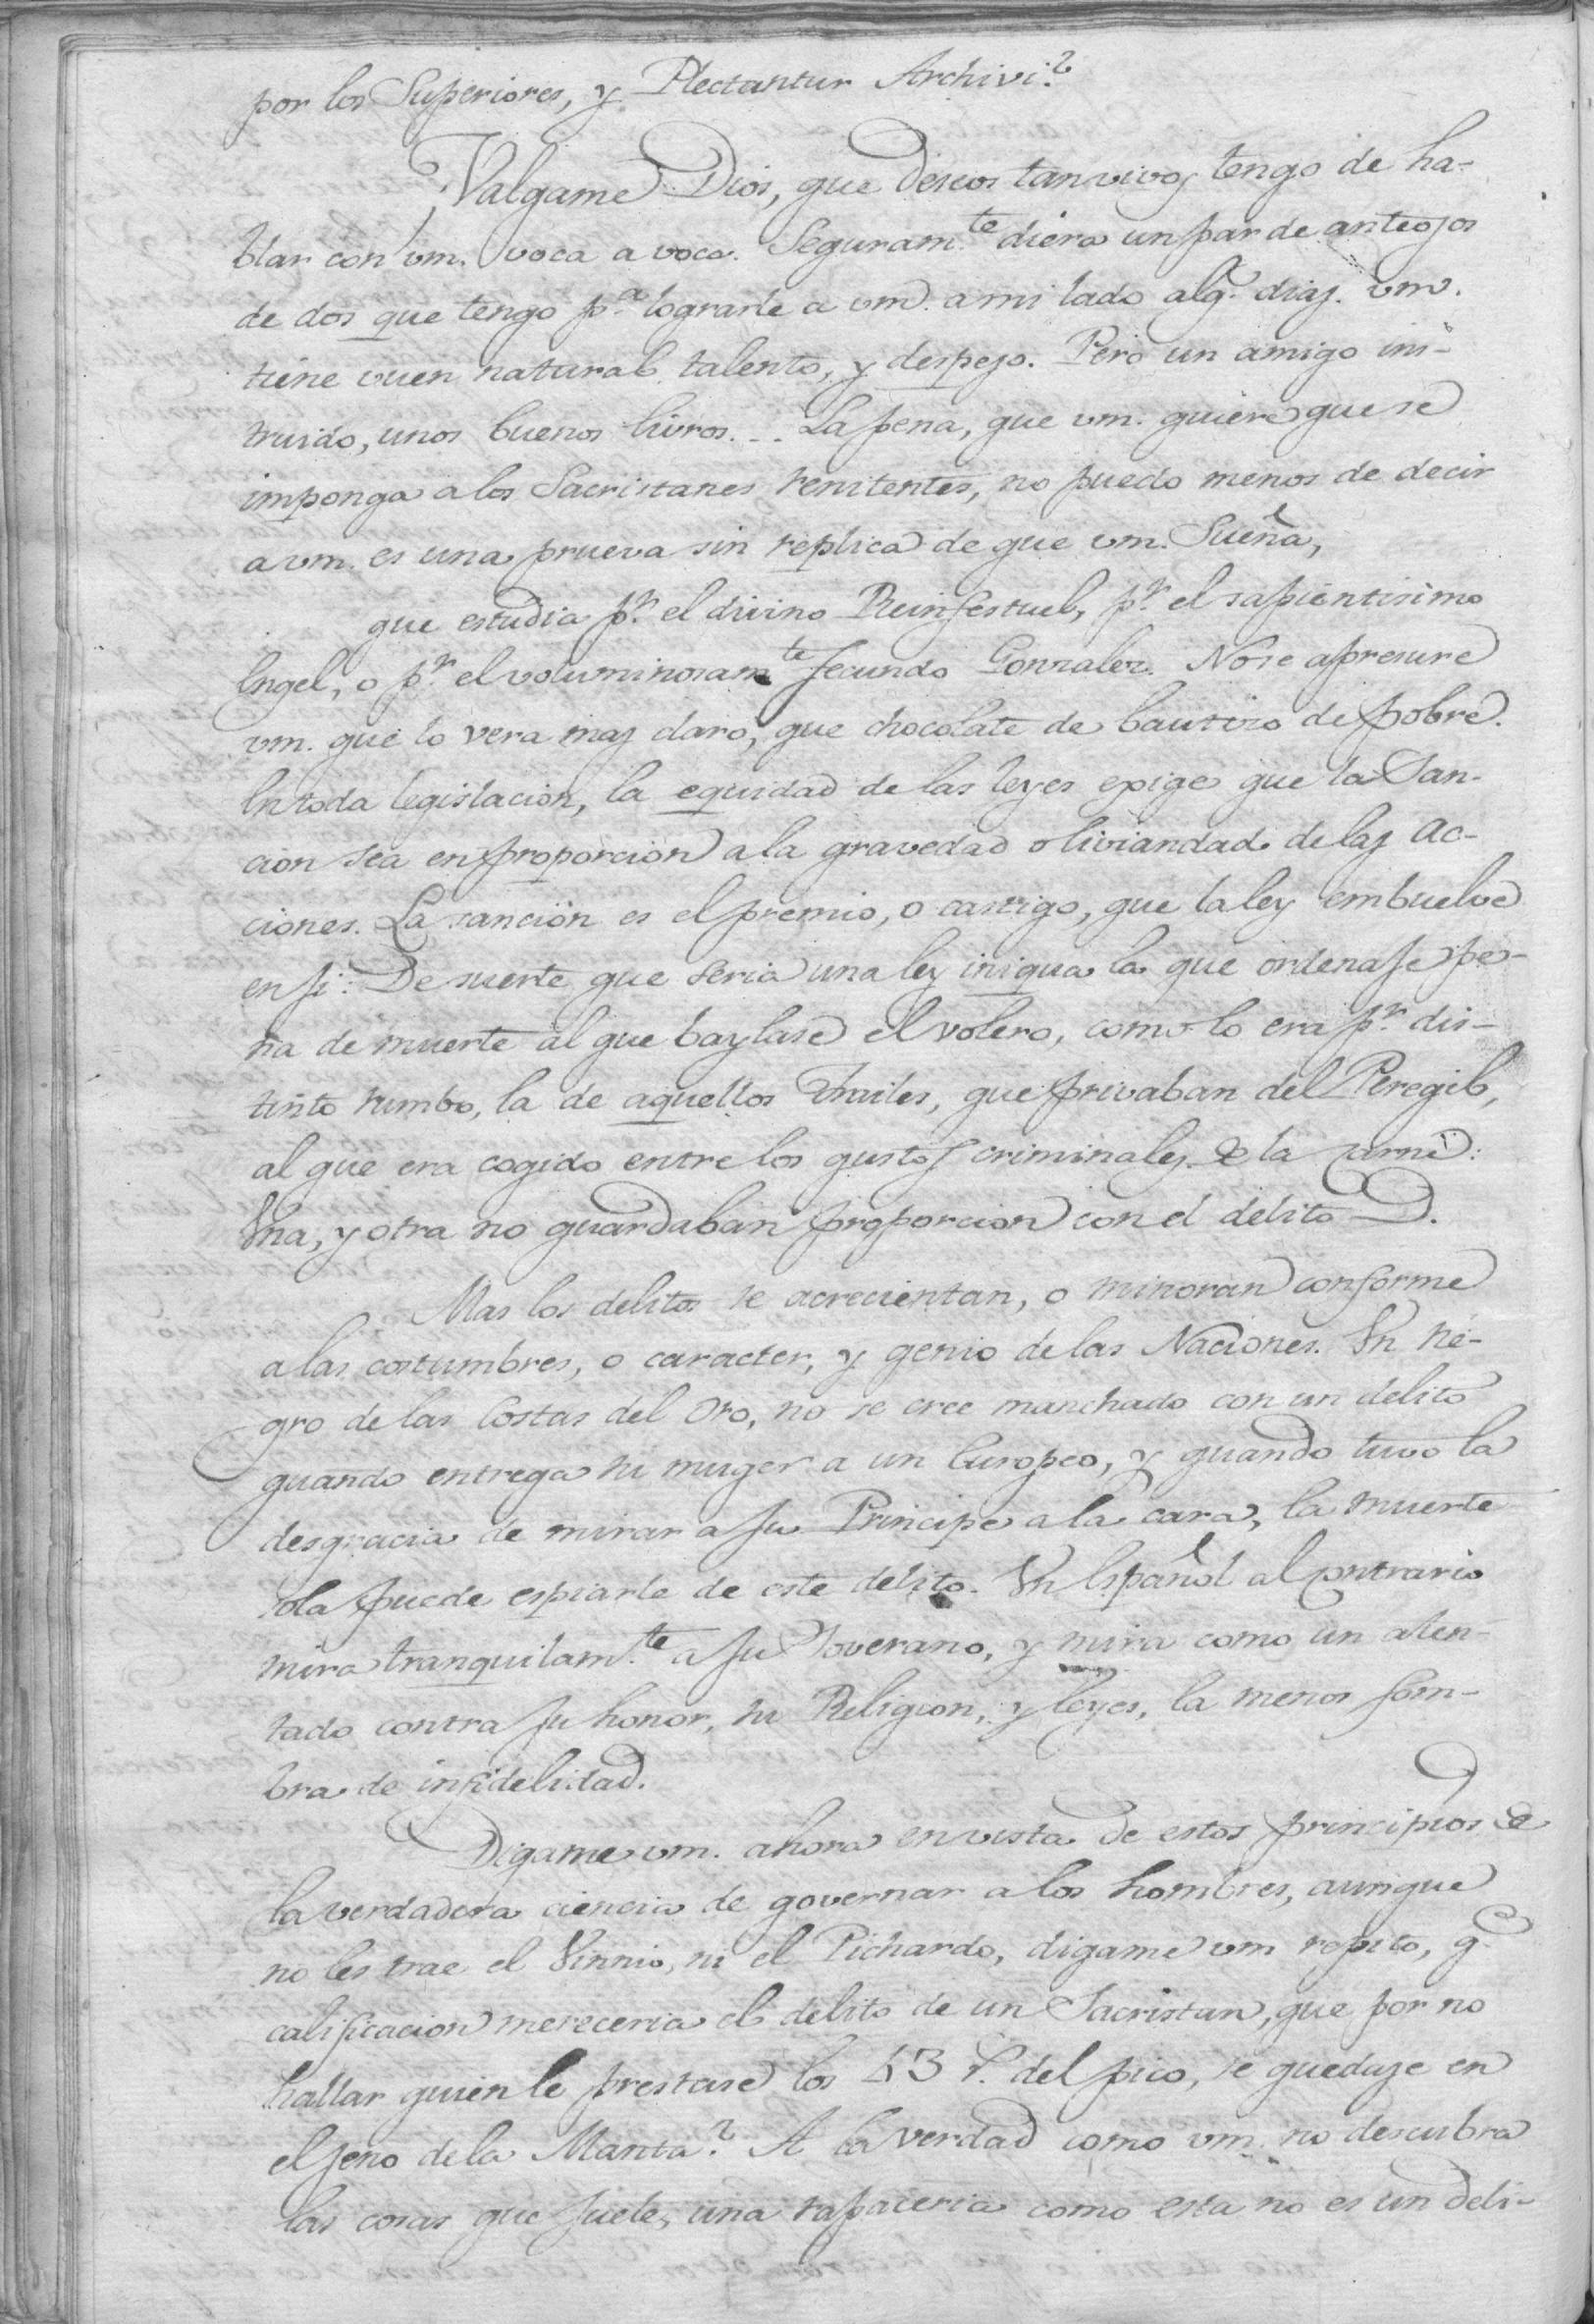 por los Superiores, y Plectantur Archivi.?
¡Valgame Dios, que deseos tan vivos tengo de ha-
blar con vm. voca a voca. Seguram.te diera un par de anteojos
de dos que tengo p.a lograrle a vm. a mi lado alg.s dias. vm.
tiene buen natural, talento, y despejo. Pero un amigo ins-
truido, unos buenos livros... La pena, que vm. quiere que se
imponga a los Sacristanes renitentes, no puedo menos de decir
a vm. es una prueva sin replica de que vm. Sueña,
que estudia p.r el divino Reinfestuel, p.r el sapientisimo
Engel, o p.r el voluminosam.te fecundo Gonzalez. No se apresure
vm. que lo vera mas claro, que chocolate de bautizo de pobre.
En toda legislacion, la equidad de las leyes exige que la San-
cion sea en proporcion a la gravedad o liviandad de las ac-
ciones. La sancion es el premio, o castigo, que la ley embuelve
en si: De suerte que seria una ley iniqua la que ordenase pe-
na de muerte al que baylase el volero, como lo era p.r dis-
tinto rumbo, la de aquellos Frailes, que privaban del Peregil,
al que era cogido entre los gustos criminales de la carne:
Una, y otra no guardaban proporcion con el delito.
Mas los delitos se acrecientan, o minoran conforme
a las costumbres, o caracter, y genio de las Naciones. Un ne-
gro de las Costas del Oro, no se cree manchado con un delito
quando entrega su muger a un Europeo, y quando tuvo la
desgracia de mirar a su Principe a la cara, la muerte
sola puede espiarle de este delito. Un Español al contrario
mira tranquilam.te a su Soverano, y mira como un aten-
tado contra su honor, su Religion, y leyes, la menor som-
bra de infidelidad.
Digame vm. ahora en vista de estos principios de
la verdadera ciencia de governar a los hombres, aunque
no les trae el Vinnio, ni el Pichardo, digame vm repito, q.e
calificacion mereceria el delito de un Sacristan, que por no
hallar quien le prestase los 43 r. del pico, se quedase en
el seno de la Manta? A la verdad como vm. no descubra
las cosas que suele, una rapaceria como esta no es un deli-